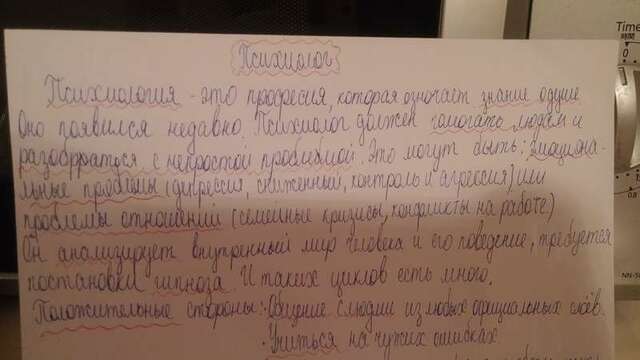 Психиолог
Психиология - это профресия, которая означает знание о душе
Оно появился недавно. Психиолог должен помогать людям и
разобрраться с непростой проблиммой. Это могут быть: эмоциона-
льные проблемы (депрессия, сниженный, контроль и агрессия) или
проблемы отношений (семейные кризисы, конфликты на работе)
Он анализирует внутренный мир человека и его поведение, требуется
постановки гипноза. И таких циклов есть много.
Положительные стороны: Общение с людми из любых официальных слоёв.
· Учиться на чужих ошибках.
Time
時間
0
NN-S